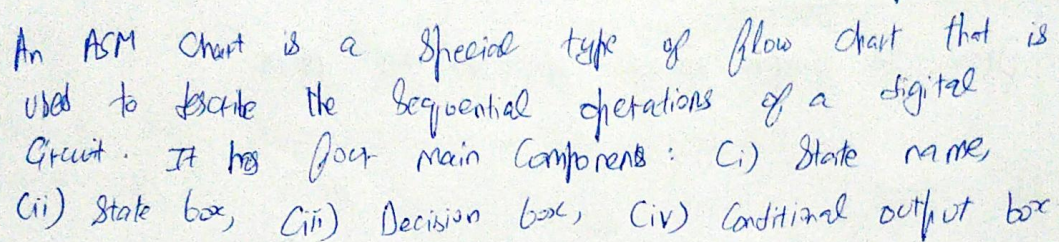 An ASM Chart is a Special type of flow chart that is
used to describe the Sequential operations of a digital
Circuit. It has four main Components: (i) State name,
(ii) State box, (iii) Decision box, (iv) Conditional output box